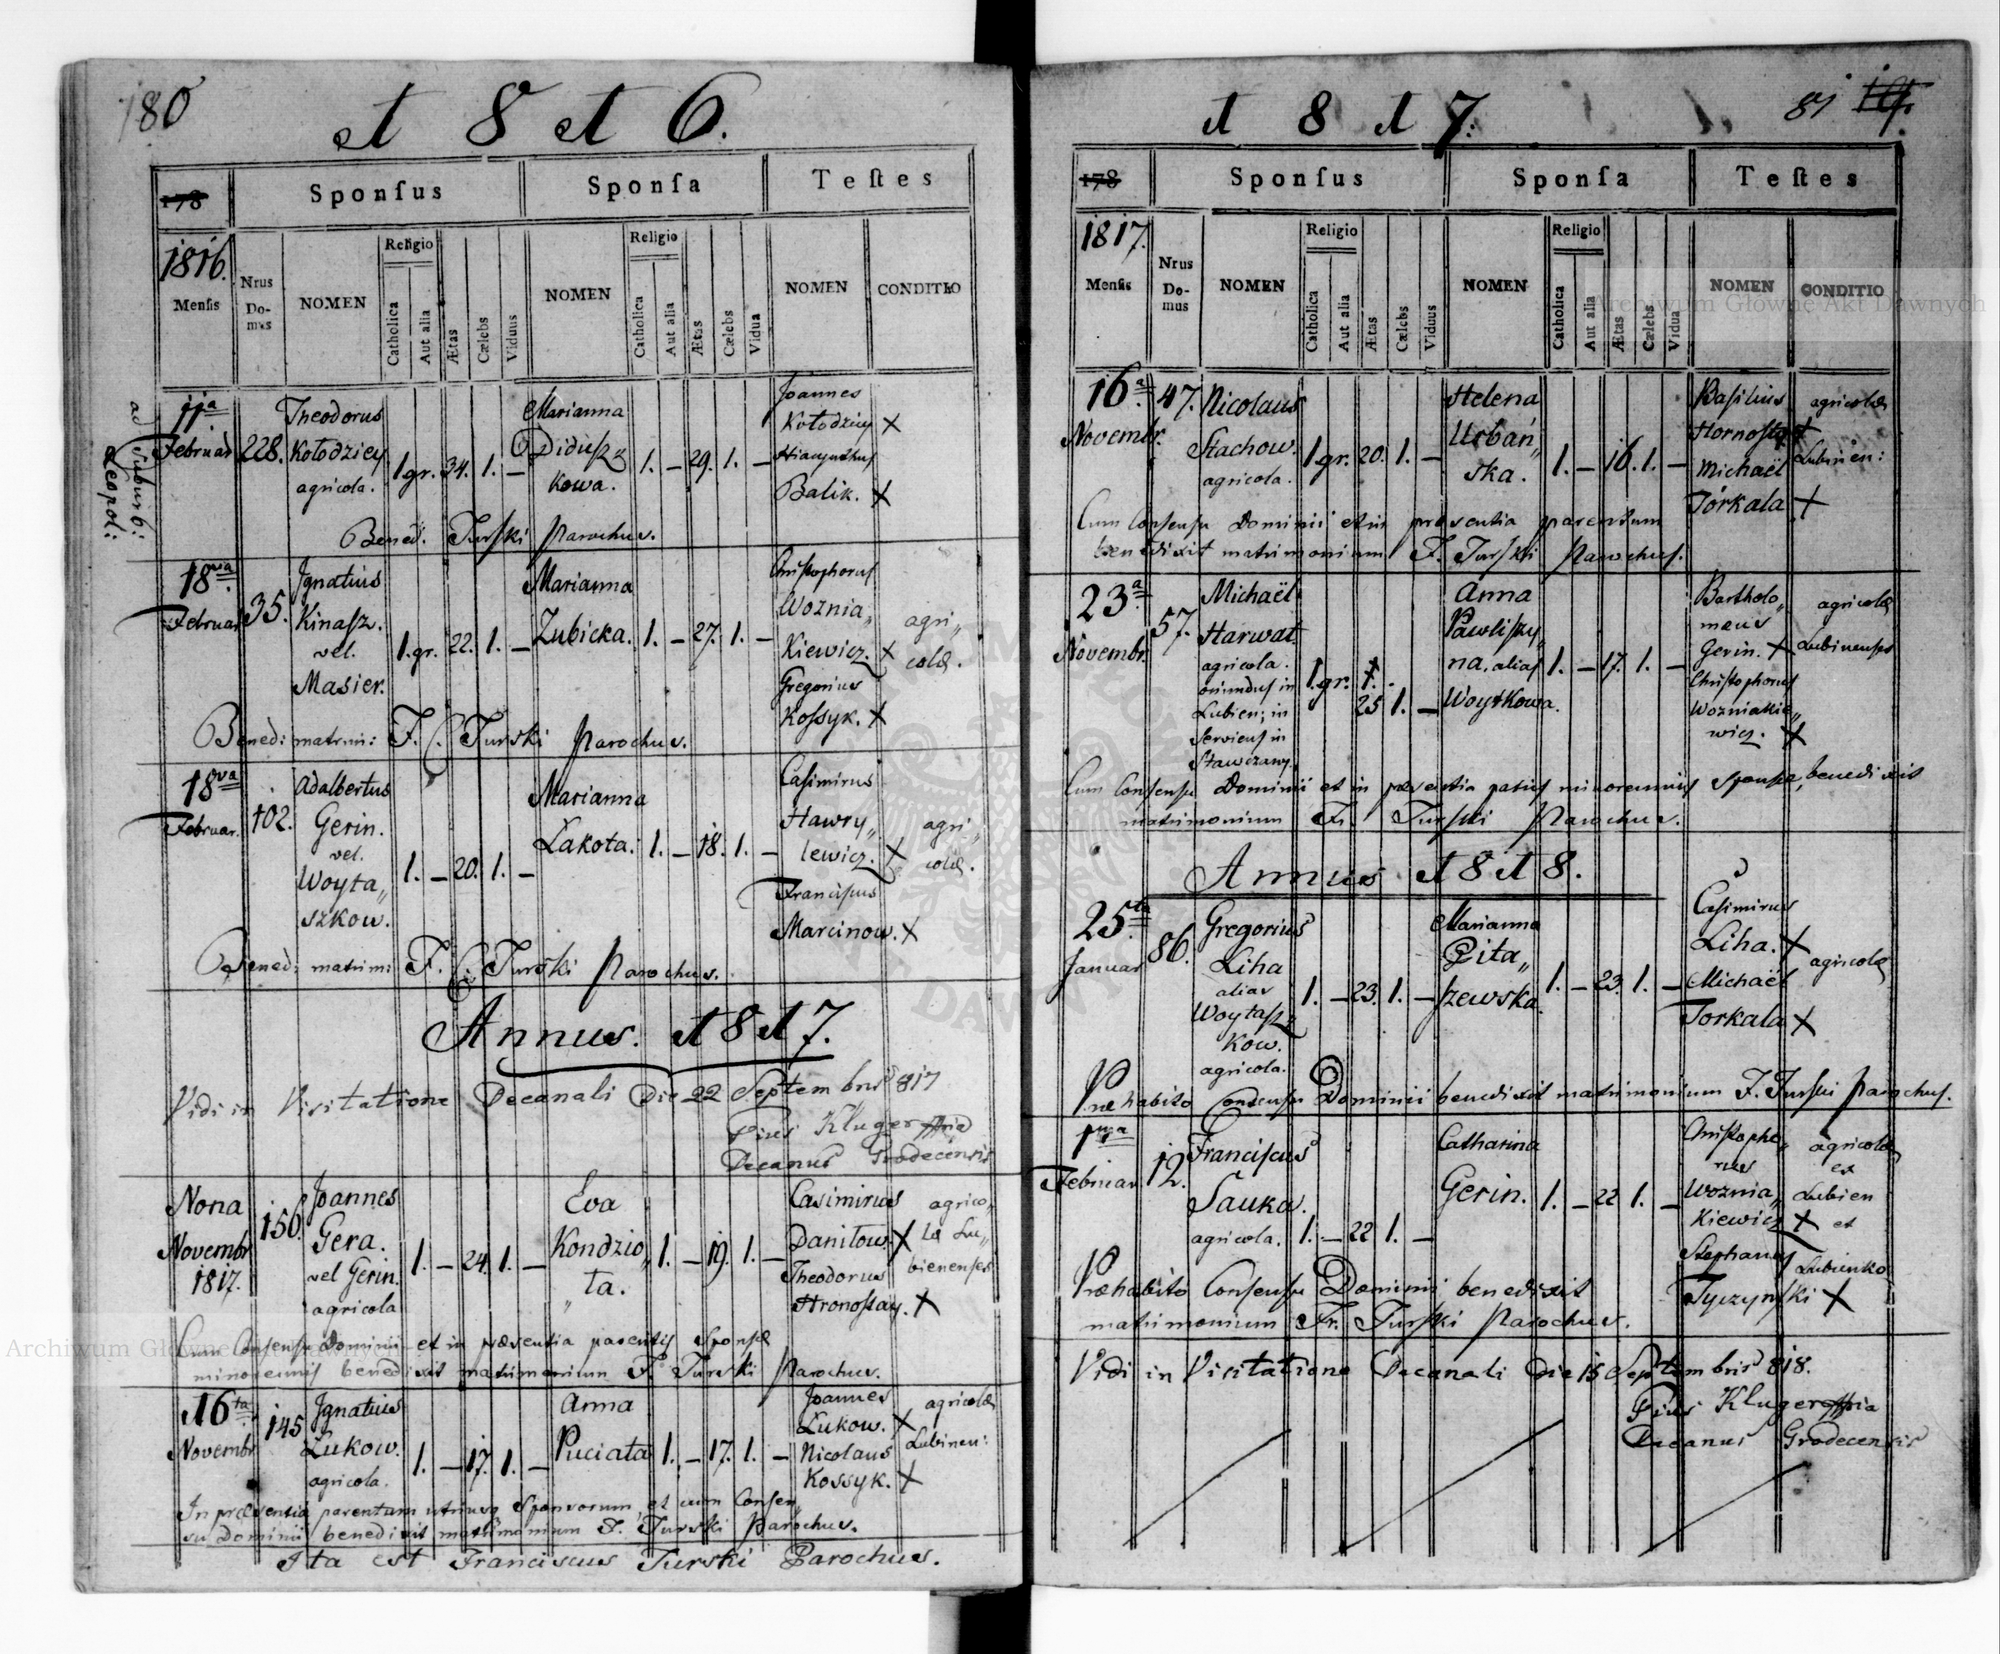 180
1 8 1 6.
178
Sponſus
Sponſa
Teſtes
1816.
Menſis
Nrus
Do-
mus
NOMEN
Religio
Catholica
Aut alia
Ætas
Cælebs
Viduus
NOMEN
Religio
Catholica
Aut alia
Ætas
Cælebs
Vidua
NOMEN
CONDITIO
ad Suburb:
Leopol:
11a
Februar
228.
Theodorus
Kołodziey
agricola.
1 gr. 34. 1. –
Marianna
Diduſz
Kowa.
1. – 29. 1. –
Joannes
Kołodziey X
Hiacynthuſ
Balik. X
Bened: Turſki Parochus.
18va
Februar
35.
Ignatius
Kinaſz.
vel.
Masier.
1. gr. 22. 1. –
Marianna
Zubicka.
1. – 27. 1. –
Chriſtophoruſ
Woznia„
Kiewicz. X
Gregorius
Koſsyk. X
agri„
colæ.
Bened: matrim: F. C. Turski Parochus.
18va
Februar.
102.
Adalbertus
Gerin.
vel.
Woyta„
szkow.
1. – 20. 1. –
Marianna
Łakota.
1. – 18. 1. –
Caſimirus
Hawry„
lewicz. X
Franciſcus
Marcinow. X
agri„
colæ.
Bened: matrim: F. C. Turski Parochus.
Annus. 1817.
Vidi in Visitatione Decanali Die 22 Septembris 817
Pius Kluger mpria
Decanus Grodecensis
Nona
Novembr
1817.
150.
Joannes
Gera.
vel Gerin.
agricola
1. – 24. 1. –
Eva
Kondzio„
„ta.
1. – 19. 1. –
Casimirus
Daniłow. X
Theodorus
Hronostay. X
agrico„
læ Lu„
bienenses
Cum Conſenſu Dominii et in præsentia parentiſ Sponſæ
minorenniſ benedixit matrimonium F. Turski Parochus.
16ta
Novembr
145
Ignatius
Łukow.
agricola.
1. – 17. 1. –
Anna
Puciata
1. – 17. 1. –
Joannes
Łukow. X
Nicolaus
Kossyk. X
agricolæ
Lubinen:
In præsentia parentum utriusq Sponsorum, et cum Conſen„
su Dominii benedixit matrimonium F. Turski Parochus.
Ita est Franciscus Turski Parochus.
1 8 1 7.
81
178
Sponſus
Sponſa
Teſtes
1817.
Menſis
Nrus
Do-
mus
NOMEN
Religio
Catholica
Aut alia
Ætas
Cælebs
Viduus
NOMEN
Religio
Catholica
Aut alia
Ætas
Cælebs
Vidua
NOMEN
CONDITIO
16a
Novembr.
47.
Nicolaus
Stachow.
agricola.
1 gr. 20. 1. –
Helena
Urbań„
ska.
1. – 16. 1. –
Baſilius
Hornoſtay X
Michaël
Torkala X
agricolæ
Lubinen:
Cum Conſenſu Dominii et in præsentia parentum
benedixit matrimonium F. Turſki Parochuſ.
23a
Novembr.
57.
Michaël
Harwat
agricola.
oriunduſ in
Lubien; in
Servienſ in
Stawczany.
1. gr. 25 1. –
Anna
Pawliſzy„
na, aliaſ
Woytkowa.
1. – 17. 1. –
Bartholo„
mæus
Gerin. X
Chriſtophoruſ
Wozniakie„
wicz. X
agricolæ
Lubinenſes
Cum Conſenſu Dominii et in præsentia patriſ minorenniſ Sponſæ, benedixit
matrimonium Fr. Turſki Parochus.
Annus 1818.
25ta
Januar
86.
Gregorius
Liha
alias
Woytaſz
Kow.
agricola.
1. – 23. 1. –
Marianna
Pita„
ſzewska.
1. – 23. 1. –
Caſimirus
Liha. X
Michaël
Torkala X
agricolæ
Præhabito Conſenſu Dominii benedixit matrimonium F. Turſki Parochuſ.
1ma
Februar
12.
Franciſcus
Sauka.
agricola.
1. – 22 1. –
Catharina
Gerin.
1. – 22 1. –
Chriſtopho„
rus
Woznia„
Kiewicz X
Stephanuſ
Tyczynſki X
agricolæ
ex
Lubien
et
Lubienko
Præhabito Conſenſu Dominii benedixit
matrimonium Fr. Turſki Parochus.
Vidi in Visitatione Decanali Die 15 Septembris 818.
Pius Kluger mpria
Decanus Grodecensis
Archiwum Główne Akt Dawnych
Archiwum Główne Akt Dawnych